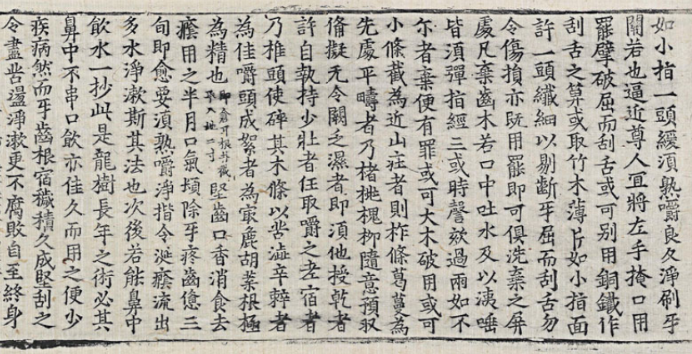 如小指一頭緩須熟嚼良久淨刷牙
關若也逼近尊人宜將左手掩口用
罷擘破屈而刮舌或可別用銅鐵作
刮舌之箅或取竹木薄片如小指面
許一頭纖細以剔斷牙屈而刮舌勿
令傷損亦旣用罷即可俱洗棄之屏
處凡棄齒木若口中吐水及以洟唾
皆須彈指經三或時謦欬過兩如不
尒者棄便有罪或可大木破用或可
小條截為近山莊者則柞條葛蔓為
先處平疇者乃楮桃槐柳隨意預収
俻擬无令闕乏濕者即須他授乾者
許自執持少壯者任取嚼之老宿者
乃椎頭使碎其木條以苦澁辛辣者
為佳嚼頭成絮者為㝡麁胡葉根極
為精也即倉耳根并截取入地二寸堅齒口香消食去
癊用之半月口氣頓除牙疼齒憊三
旬即愈要須熟嚼淨揩令涎癊流出
多水淨漱斯其法也次後若能鼻中
飲水一抄此是龍樹長年之術必其
鼻中不串口飲亦佳久而用之便少
疾病然而牙齒根宿穢積久成堅刮之
令盡苦盪淨漱更不腐敗自至終身